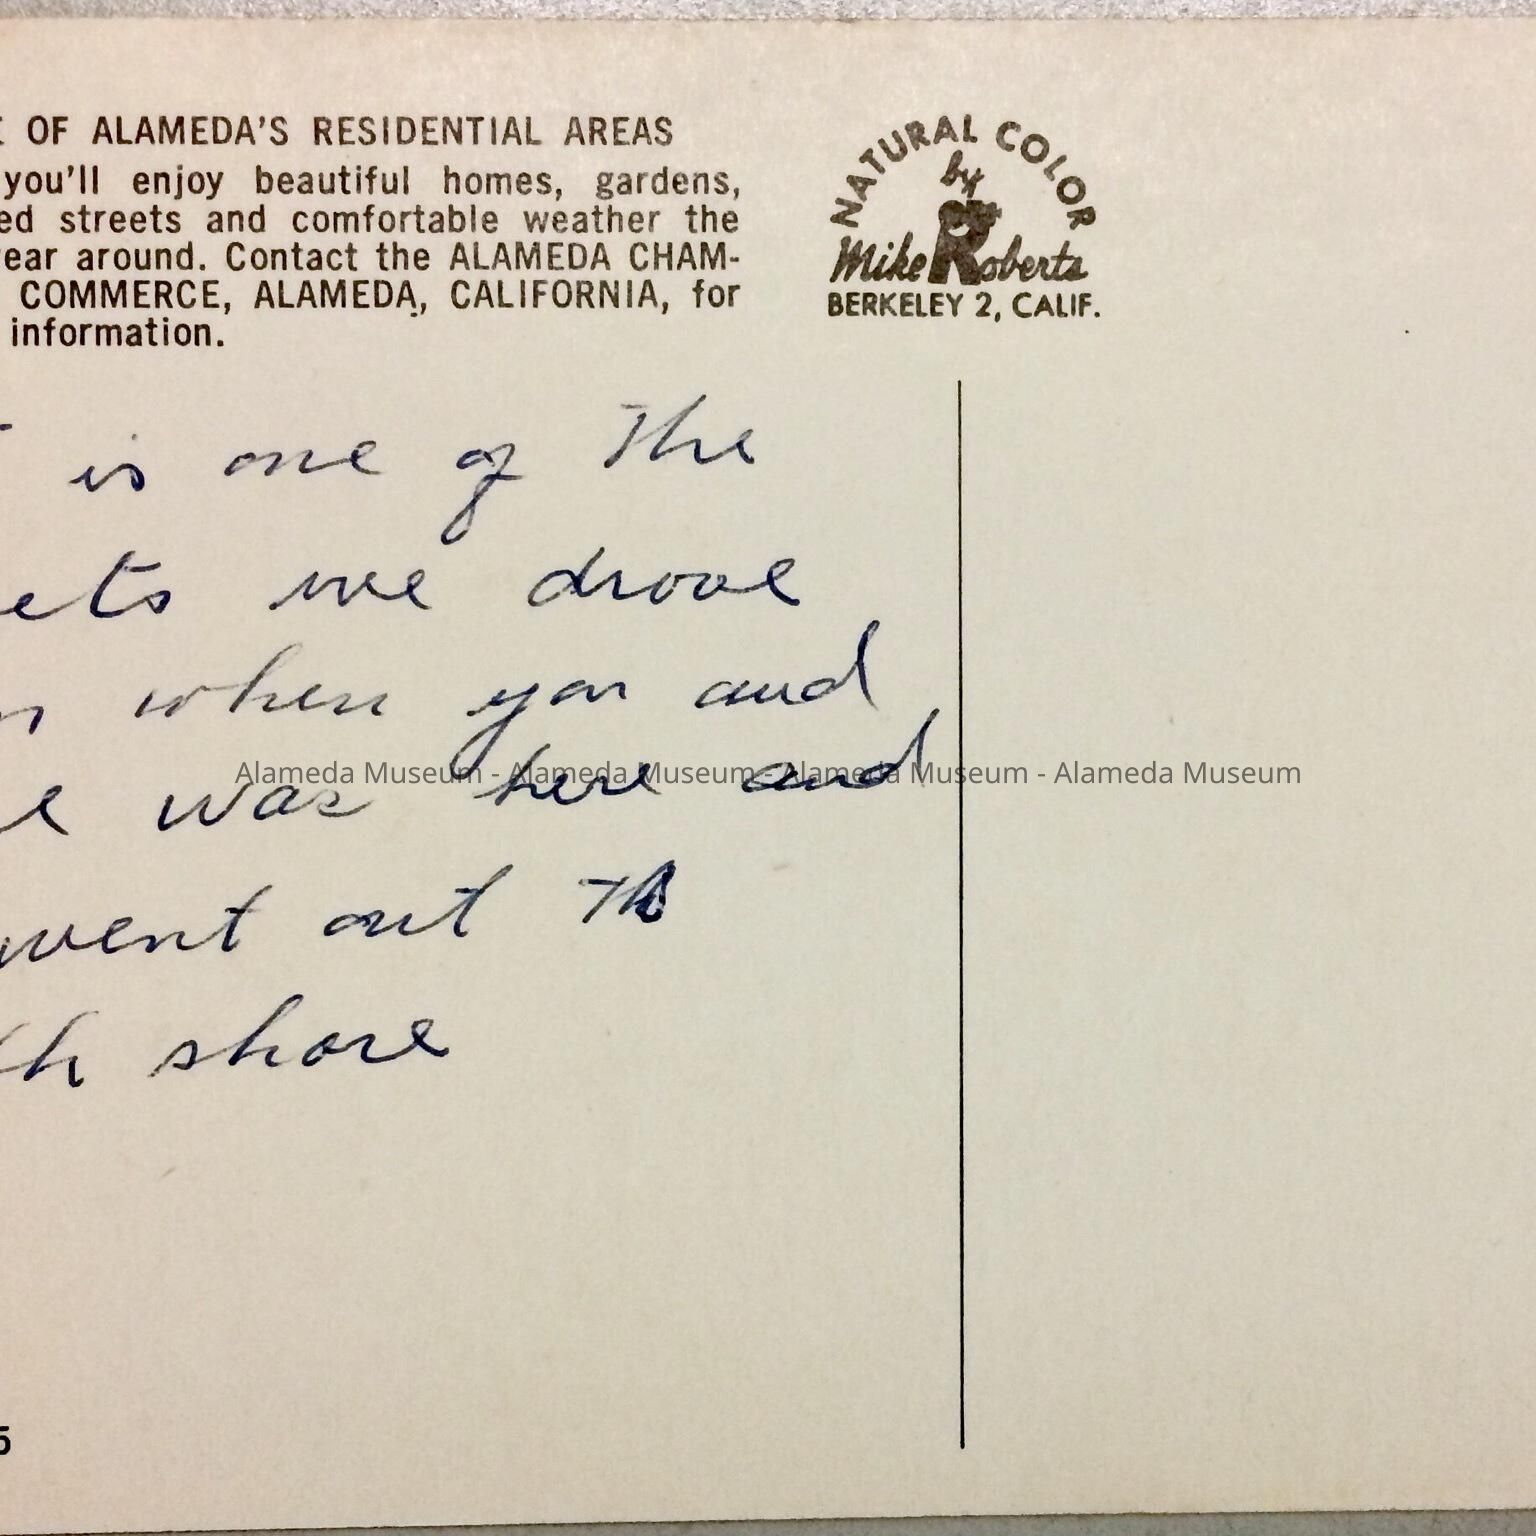 OF ALAMEDA'S RESIDENTIAL AREAS
you'll enjoy beautiful homes, gardens,
ed streets and comfortable weather the
ear around. Contact the ALAMEDA CHAM-
COMMERCE, ALAMEDA, CALIFORNIA, for
information.
NATURAL COLOR
by
Mike Roberts
BERKELEY 2, CALIF.
is one of The
ets we drove
when you and
was here and
Alameda Museum - Alameda Museum - Alameda Museum - Alameda Museum
went out Th
th shore
5